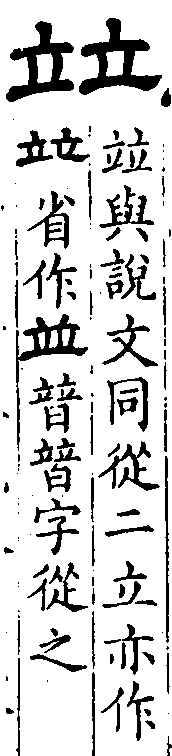 竝
竝與說文同從二立亦作
竝省作並普暜字從之